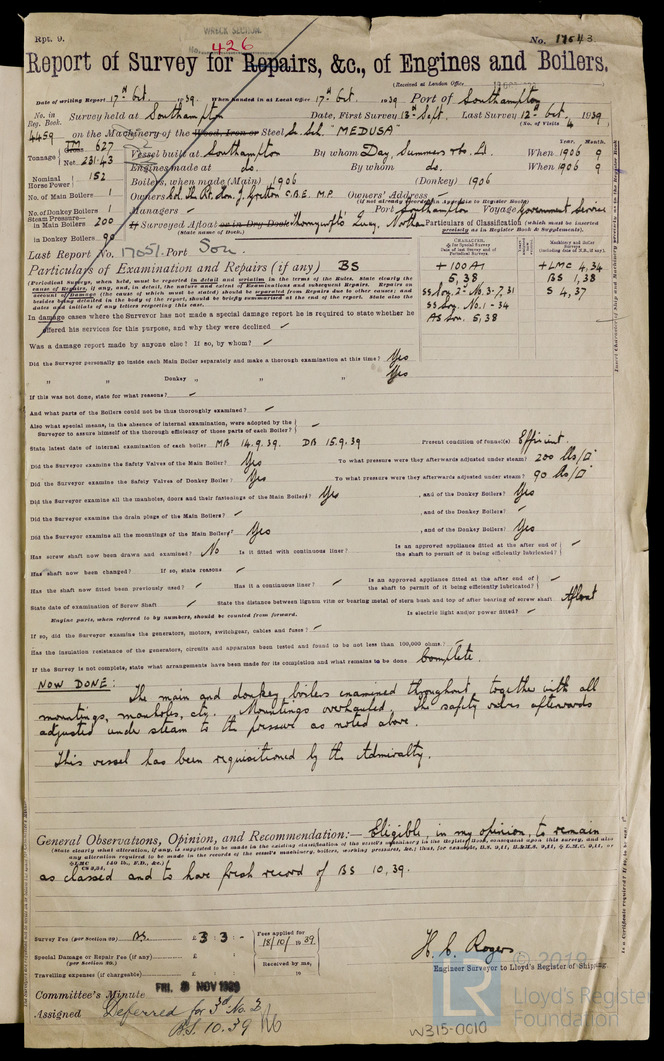 Rpt. 9.
WRECK SECTION.
No. 426
No. 17543
Report of Survey for Repairs, &c., of Engines and Boilers.
(Received at London Office
Date of writing Report 17th Oct. 1939. When handed in at Local Office 17th Oct. 1939 Port of Southampton
No. in Reg. Book. Survey held at Southampton Date, First Survey 13th Sept. Last Survey 12th Oct. 1939
(No. of Visits 4
4459 on the Machinery of the Wood, Iron or Steel S. Sch. "MEDUSA"
Tonnage Gross 627 Net 231.43
Vessel built at Southampton By whom Day, Summers & Co. Ld. When 1906 9
Year. Month.
Engines made at do. By whom do. When 1906 9
Nominal Horse Power 152
Boilers, when made (Main) 1906 (Donkey) 1906
No. of Main Boilers 1
Owners Rt. Hn. J. Gretton C.B.E. M.P. Owners' Address
(if not already recorded in Appendix to Register Book)
No. of Donkey Boilers 1
Managers Port Southampton Voyage Government Service
Steam Pressure in Main Boilers 200
If Surveyed Afloat or in Dry Dock Thornycroft's Quay, Northam
(State name of Dock.)
Particulars of Classification (which must be inserted precisely as in Register Book & Supplements).
in Donkey Boilers 90
Last Report No. 17051 Port Sou.
Particulars of Examination and Repairs (if any) BS
CHARACTER, &c. for Special Survey Date of last Survey and of Periodical Surveys.
Machinery and Boiler Surveys (including date of N.B., if any).
+ 100 A1 + LMC 4,34
5,38 BS 1,38
SS Sou. 2nd No. 3-7,31 S 4,37
SS Sou. No. 1 - 34
AS Sou. 5,38
(Periodical Surveys, when held, must be reported in detail and seriatim in the terms of the Rules. State clearly the cause of Repairs, if any, and, in detail, the nature and extent of Examinations and subsequent Repairs. Repairs on account of Damage (the cause of which must be stated) should be separated from Repairs due to other causes; and besides being detailed in the body of the report, should be briefly summarised at the end of the report. State also the dates and initials of any letters respecting this case.)
In damage cases where the Surveyor has not made a special damage report he is required to state whether he
offered his services for this purpose, and why they were declined
Was a damage report made by anyone else? If so, by whom?
Did the Surveyor personally go inside each Main Boiler separately and make a thorough examination at this time? Yes
" " Donkey " " " Yes
If this was not done, state for what reasons?
And what parts of the Boilers could not be thoroughly examined?
Also what special means, in the absence of internal examination, were adopted by the
Surveyor to assure himself of the thorough efficiency of those parts of each Boiler?
State latest date of internal examination of each boiler MB 14.9.39. DB 15.9.39 Present condition of funnel(s) Efficient.
Did the Surveyor examine the Safety Valves of the Main Boiler? Yes To what pressure were they afterwards adjusted under steam? 200 lbs/□"
Did the Surveyor examine the Safety Valves of Donkey Boiler? Yes To what pressure were they afterwards adjusted under steam? 90 lbs/□"
Did the Surveyor examine all the manholes, doors and their fastenings of the Main Boilers? Yes , and of the Donkey Boilers? Yes
Did the Surveyor examine the drain plugs of the Main Boilers? , and of the Donkey Boilers?
Did the Surveyor examine all the mountings of the Main Boilers? Yes , and of the Donkey Boilers? Yes
Has screw shaft now been drawn and examined? No Is it fitted with continuous liner? Is an approved appliance fitted at the after end of the shaft to permit of it being efficiently lubricated?
Has shaft now been changed? If so, state reasons
Has the shaft now fitted been previously used? Has it a continuous liner? Is an approved appliance fitted at the after end of the shaft to permit of it being efficiently lubricated?
State date of examination of Screw Shaft State the distance between lignum vitæ or bearing metal of stern bush and top of after bearing of screw shaft Afloat
Engine parts, when referred to by numbers, should be counted from forward. Is electric light and/or power fitted?
If so, did the Surveyor examine the generators, motors, switchgear, cables and fuses?
Has the insulation resistance of the generators, circuits and apparatus been tested and found to be not less than 100,000 ohms?
If the Survey is not complete, state what arrangements have been made for its completion and what remains to be done Complete.
NOW DONE: The main and donkey boilers examined throughout together with all
mountings, manholes, etc. Mountings overhauled. The safety valves afterwards
adjusted under steam to the pressure as noted above.
This vessel has been requisitioned by the Admiralty.
General Observations, Opinion, and Recommendation:— Eligible, in my opinion, to remain
(State clearly what alteration, if any, is suggested to be made in the existing classification of the vessel's machinery in the Register Book, consequent upon this survey, and also any alteration required to be made in the records of the vessel's machinery, boilers, working pressures, &c.;
as classed and to have fresh record of BS 10,39.
Survey Fee (per Section 29) BS. £ 3 : 3 : - Fees applied for 18/10/1939.
Special Damage or Repair Fee (if any) (per Section 29.) £ : : Received by me,
Travelling expenses (if chargeable) £ : : 19
H. C. Rogers
Engineer Surveyor to Lloyd's Register of Shipping.
Committee's Minute FRI. 3 NOV 1939
Assigned Deferred for 3rd No. 3
BS. 10.39
© 2019
LR
Lloyd's Register
Foundation
W315-0010